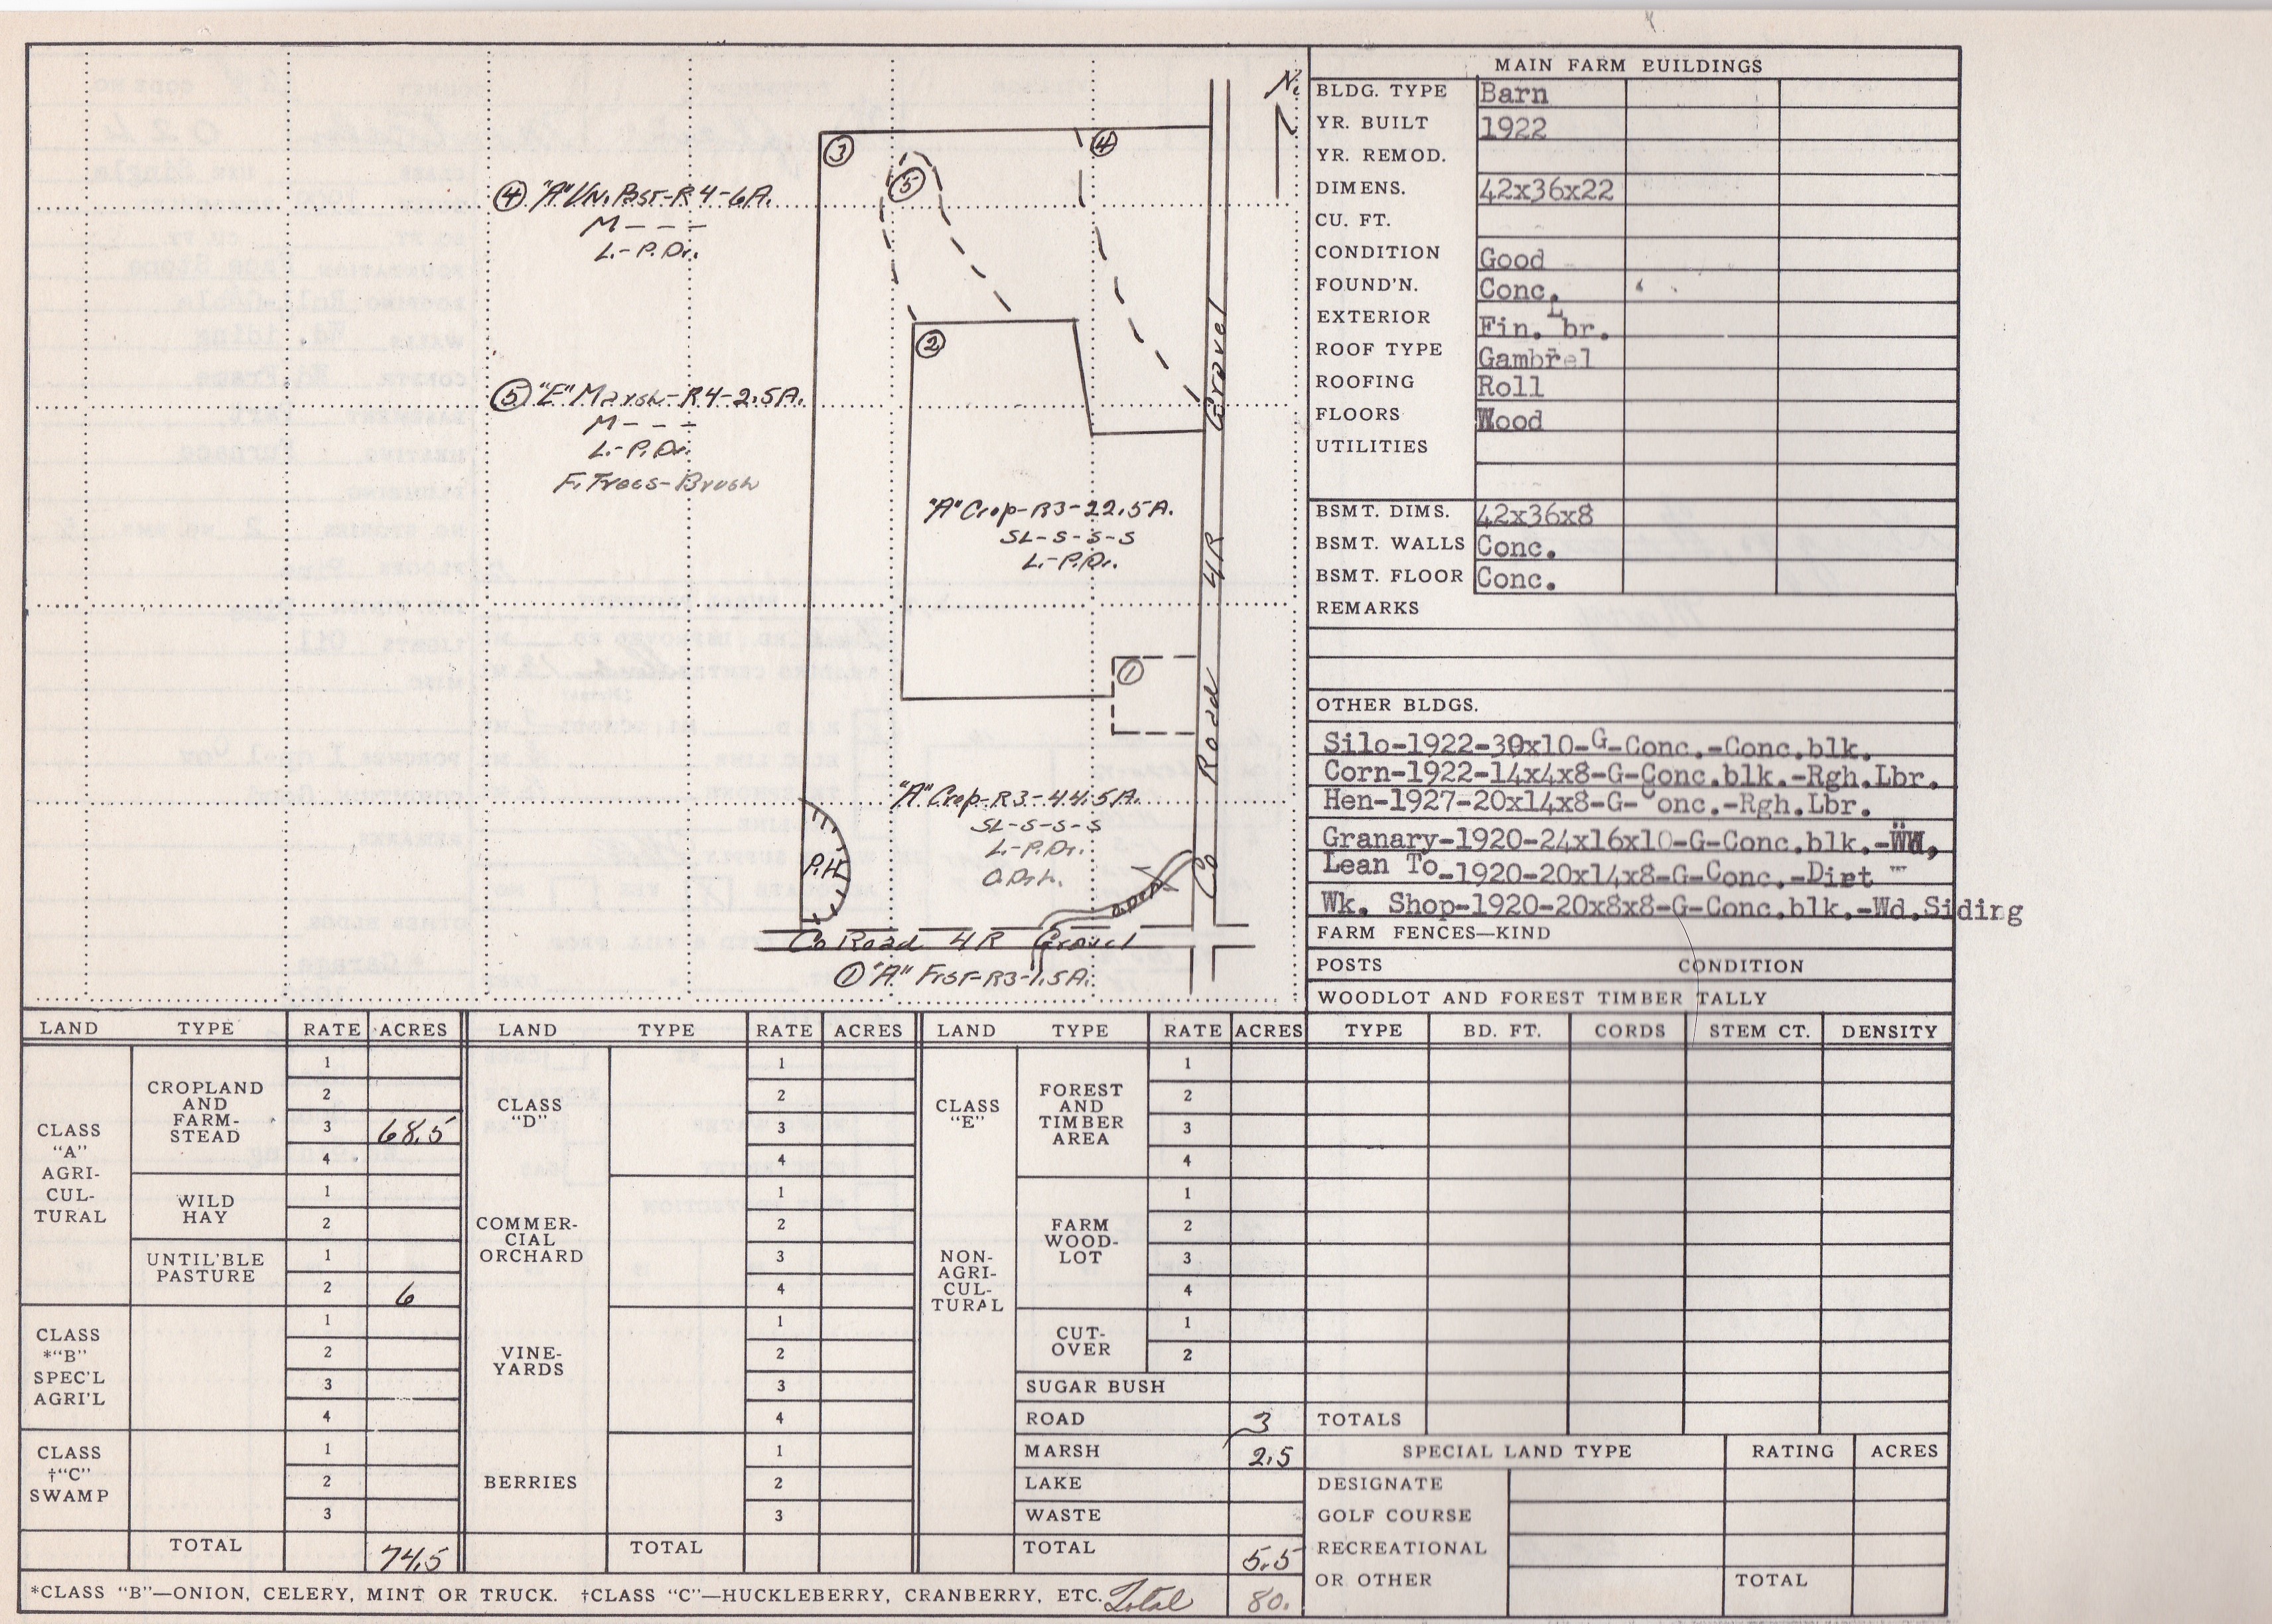 N.
③
④
⑤
④ "A" Un. Past-R4-6A.
M - - -
L.-P.Dr.
②
⑤ "E" Marsh-R4-2.5A.
M - - -
L.-P.Dr.
F. Trees-Brush
"A" Crop-R3-22.5A.
SL-S-S-S
L-P.Dr.
①
"A" Crop-R3-44.5A.
SL-S-S-S
L-P.Dr.
P.H.
Co Road 4R Gravel
Co Road 4R Gravel
① "A" Frst-R3-1.5A.
MAIN FARM BUILDINGS
BLDG. TYPE Barn
YR. BUILT 1922
YR. REMOD.
DIMENS. 42x36x22
CU. FT.
CONDITION Good
FOUND'N. Conc.
EXTERIOR Fin. Lbr.
ROOF TYPE Gambrel
ROOFING Roll
FLOORS Wood
UTILITIES
BSMT. DIMS. 42x36x8
BSMT. WALLS Conc.
BSMT. FLOOR Conc.
REMARKS
OTHER BLDGS.
Silo-1922-30x10-G-Conc.-Conc.blk.
Corn-1922-14x4x8-G-Conc.blk.-Rgh.Lbr.
Hen-1927-20x14x8-G-Conc.-Rgh.Lbr.
Granary-1920-24x16x10-G-Conc.blk.-Wd.
Lean To-1920-20x14x8-G-Conc.-Dirt
Wk. Shop-1920-20x8x8-G-Conc.blk.-Wd.Siding
FARM FENCES—KIND
POSTS CONDITION
WOODLOT AND FOREST TIMBER TALLY
LAND TYPE RATE ACRES LAND TYPE RATE ACRES LAND TYPE RATE ACRES TYPE BD. FT. CORDS STEM CT. DENSITY
CLASS
"A"
AGRI-
CUL-
TURAL
CROPLAND
AND
FARM-
STEAD
1
2
3 68.5
4
WILD
HAY
1
2
UNTIL'BLE
PASTURE
1
2 6
CLASS
*"B"
SPEC'L
AGRI'L
1
2
3
4
CLASS
†"C"
SWAMP
1
2
3
TOTAL 74.5
CLASS
"D"
COMMER-
CIAL
ORCHARD
1
2
3
4
1
2
3
4
VINE-
YARDS
1
2
3
4
BERRIES
1
2
3
TOTAL
CLASS
"E"
NON-
AGRI-
CUL-
TURAL
FOREST
AND
TIMBER
AREA
1
2
3
4
FARM
WOOD-
LOT
1
2
3
4
CUT-
OVER
1
2
SUGAR BUSH
ROAD 3
MARSH 2.5
LAKE
WASTE
TOTAL 5.5
TOTALS
SPECIAL LAND TYPE RATING ACRES
DESIGNATE
GOLF COURSE
RECREATIONAL
OR OTHER
TOTAL
*CLASS "B"—ONION, CELERY, MINT OR TRUCK. †CLASS "C"—HUCKLEBERRY, CRANBERRY, ETC. Total 80.